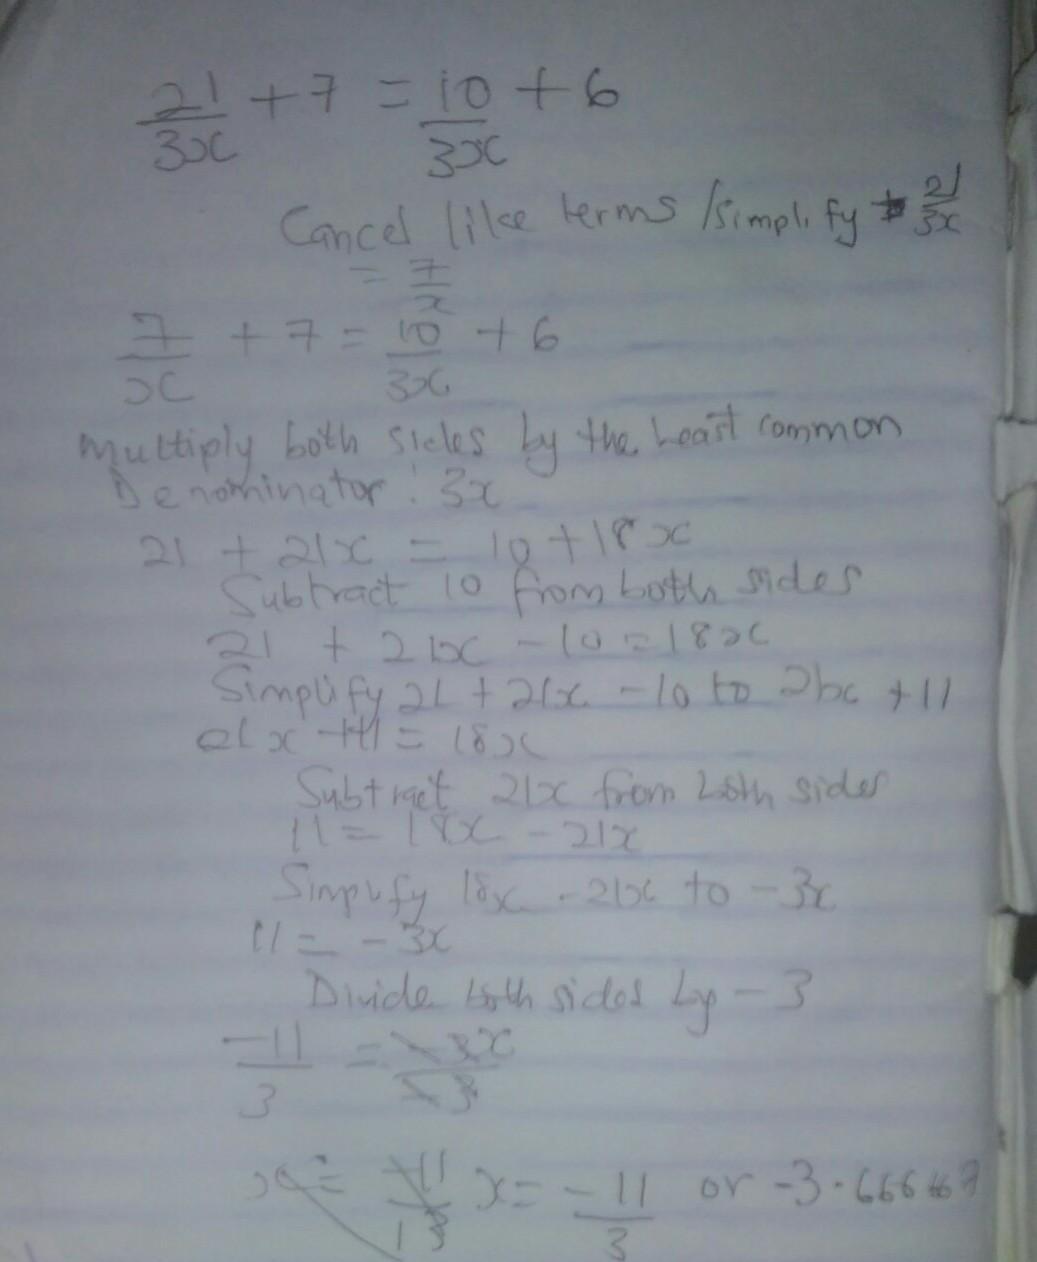 21/3x + 7 = 10/3x + 6
Cancel like terms /simplify 21/3x
= 7/x
7/x + 7 = 10/3x + 6
Multiply both sides by the Least common
Denominator : 3x
21 + 21x = 10 + 18x
Subtract 10 from both sides
21 + 21x - 10 = 18x
Simplify 21 + 21x - 10 to 21x + 11
21x + 11 = 18x
Subtract 21x from both sides
11 = 18x - 21x
Simplify 18x - 21x to - 3x
11 = - 3x
Divide both sides by - 3
-11/3 = -3x/-3
x = - 11/3 or -3.666667